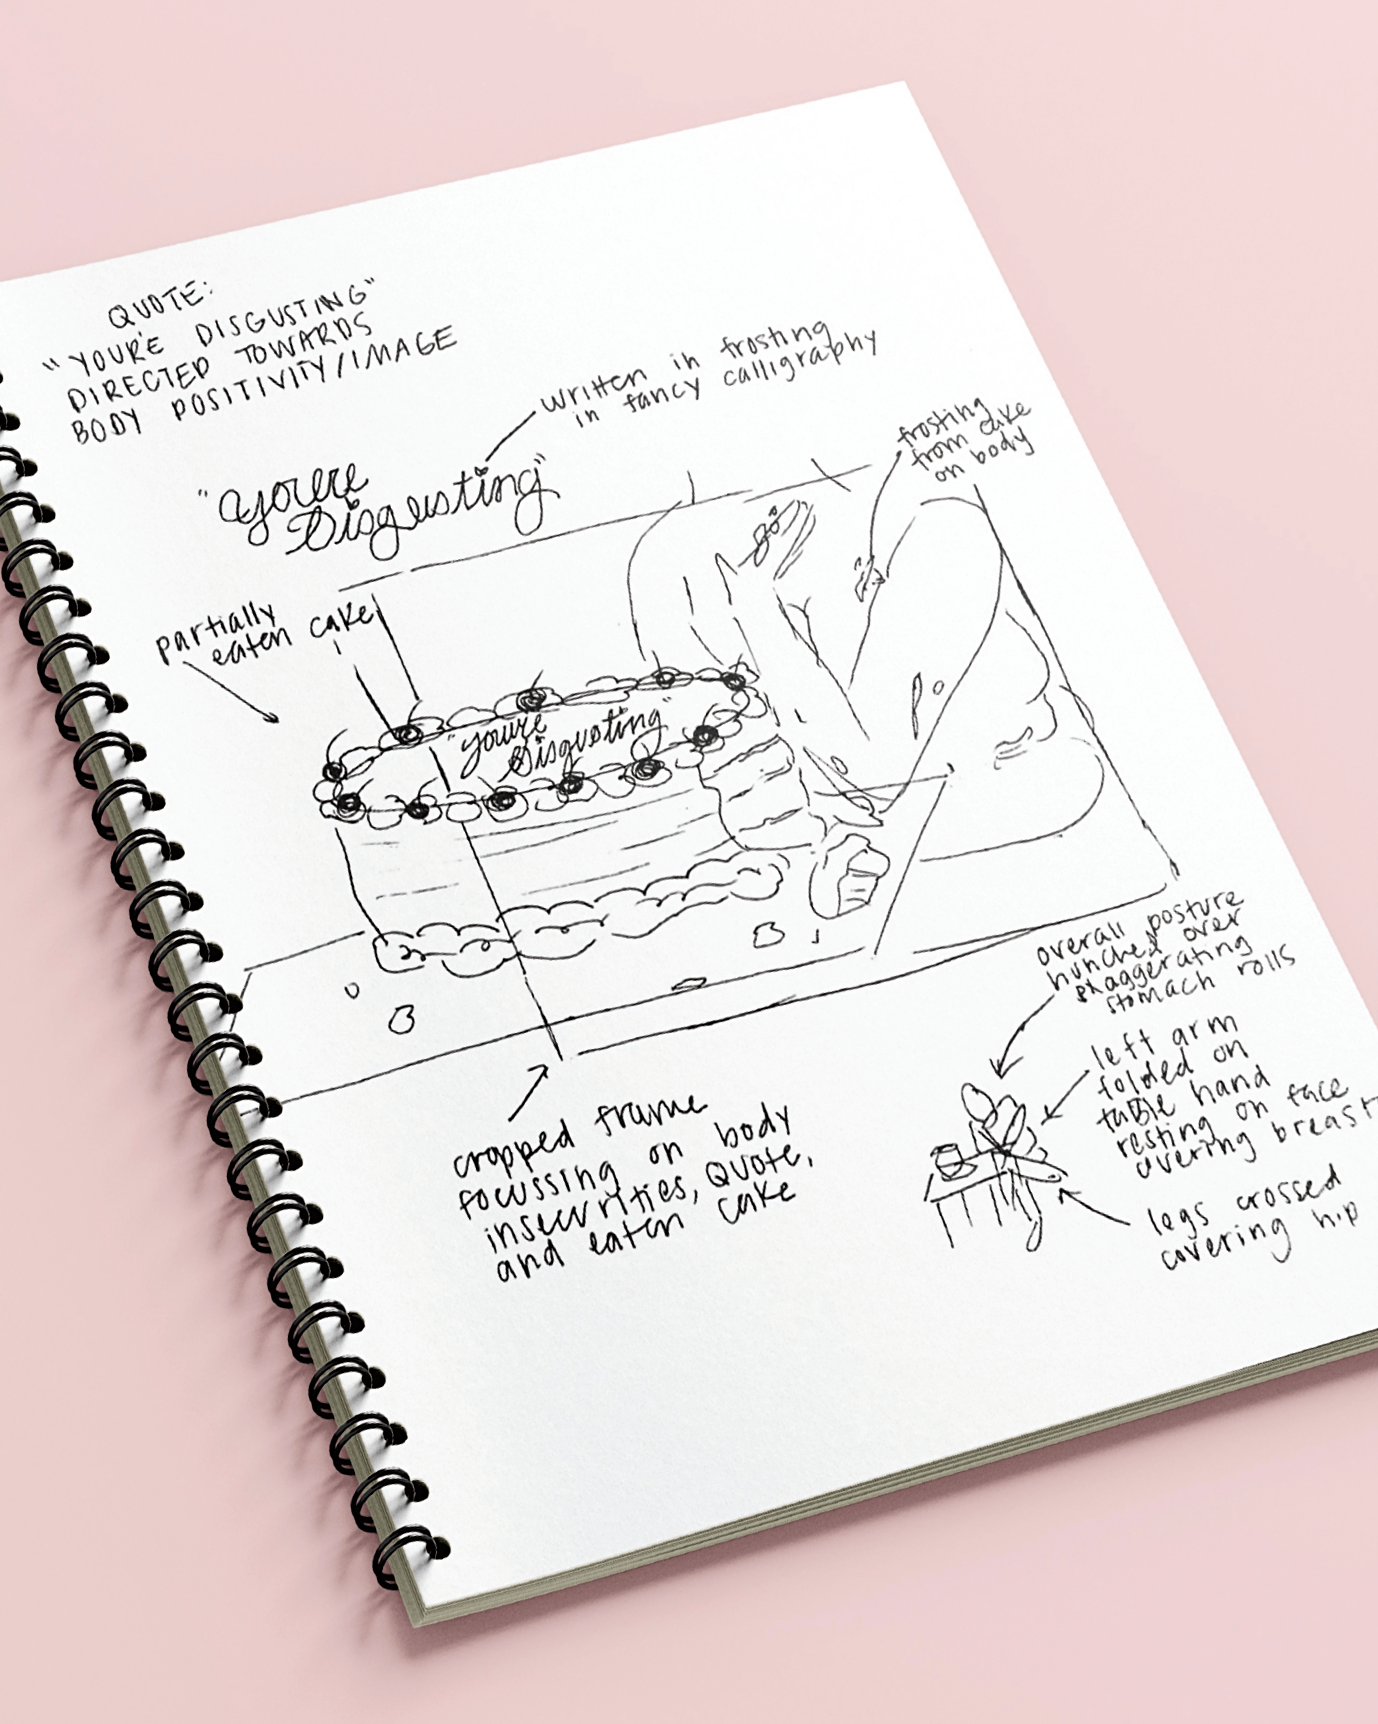 QUOTE:
"YOUR'E DISGUSTING"
DIRECTED TOWARDS
BODY POSITIVITY/IMAGE
written in frosting
in fancy calligraphy
frosting
from cake
on body
"you're
Disgusting"
partially
eaten cake
"you're
Disgusting"
overall posture
hunched over
exaggerating
stomach rolls
left arm
folded on
table hand
resting on face
covering breast
legs crossed
covering hip
cropped frame
focussing on body
insecurities, quote,
and eaten cake